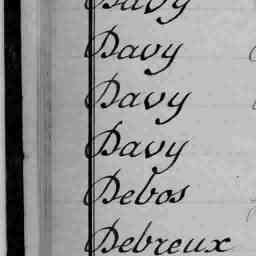 Davy
Davy
Davy
Davy
Debos
Debreux